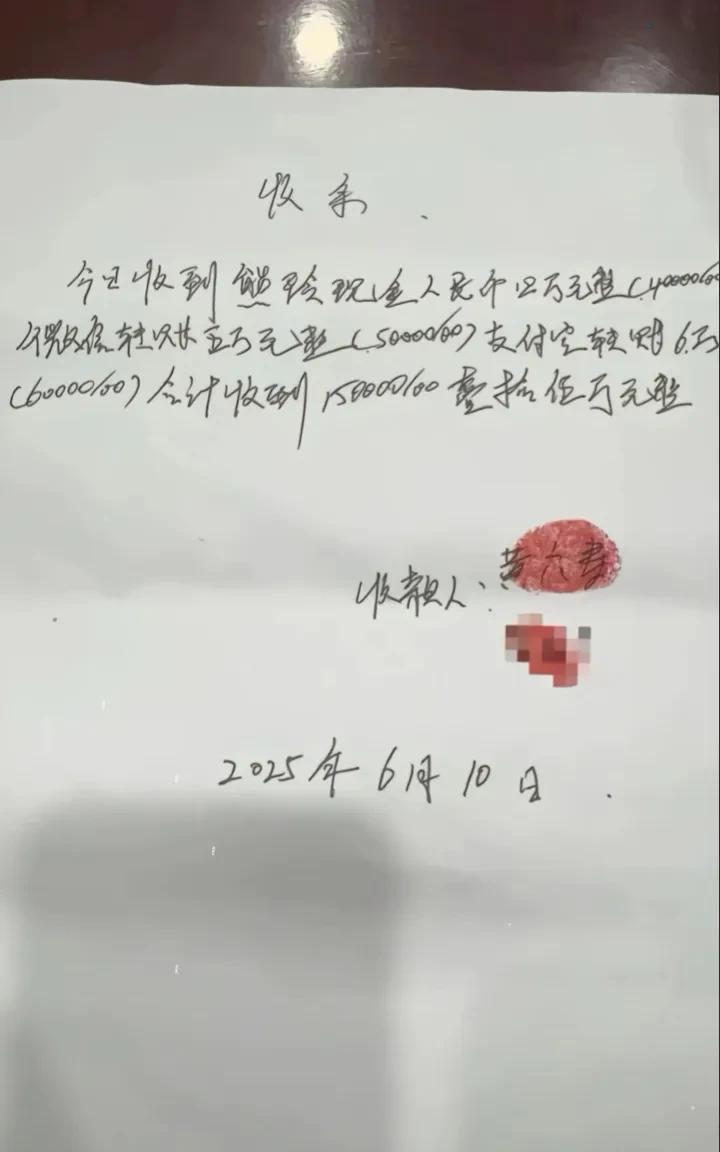 收条.
今日收到熊玲现金人民币四万元整(40000/00
微信转账五万元整(50000/00)支付宝转账6万
(60000/00)合计收到150000/00壹拾伍万元整
收款人:黄六
2025年6月10日.